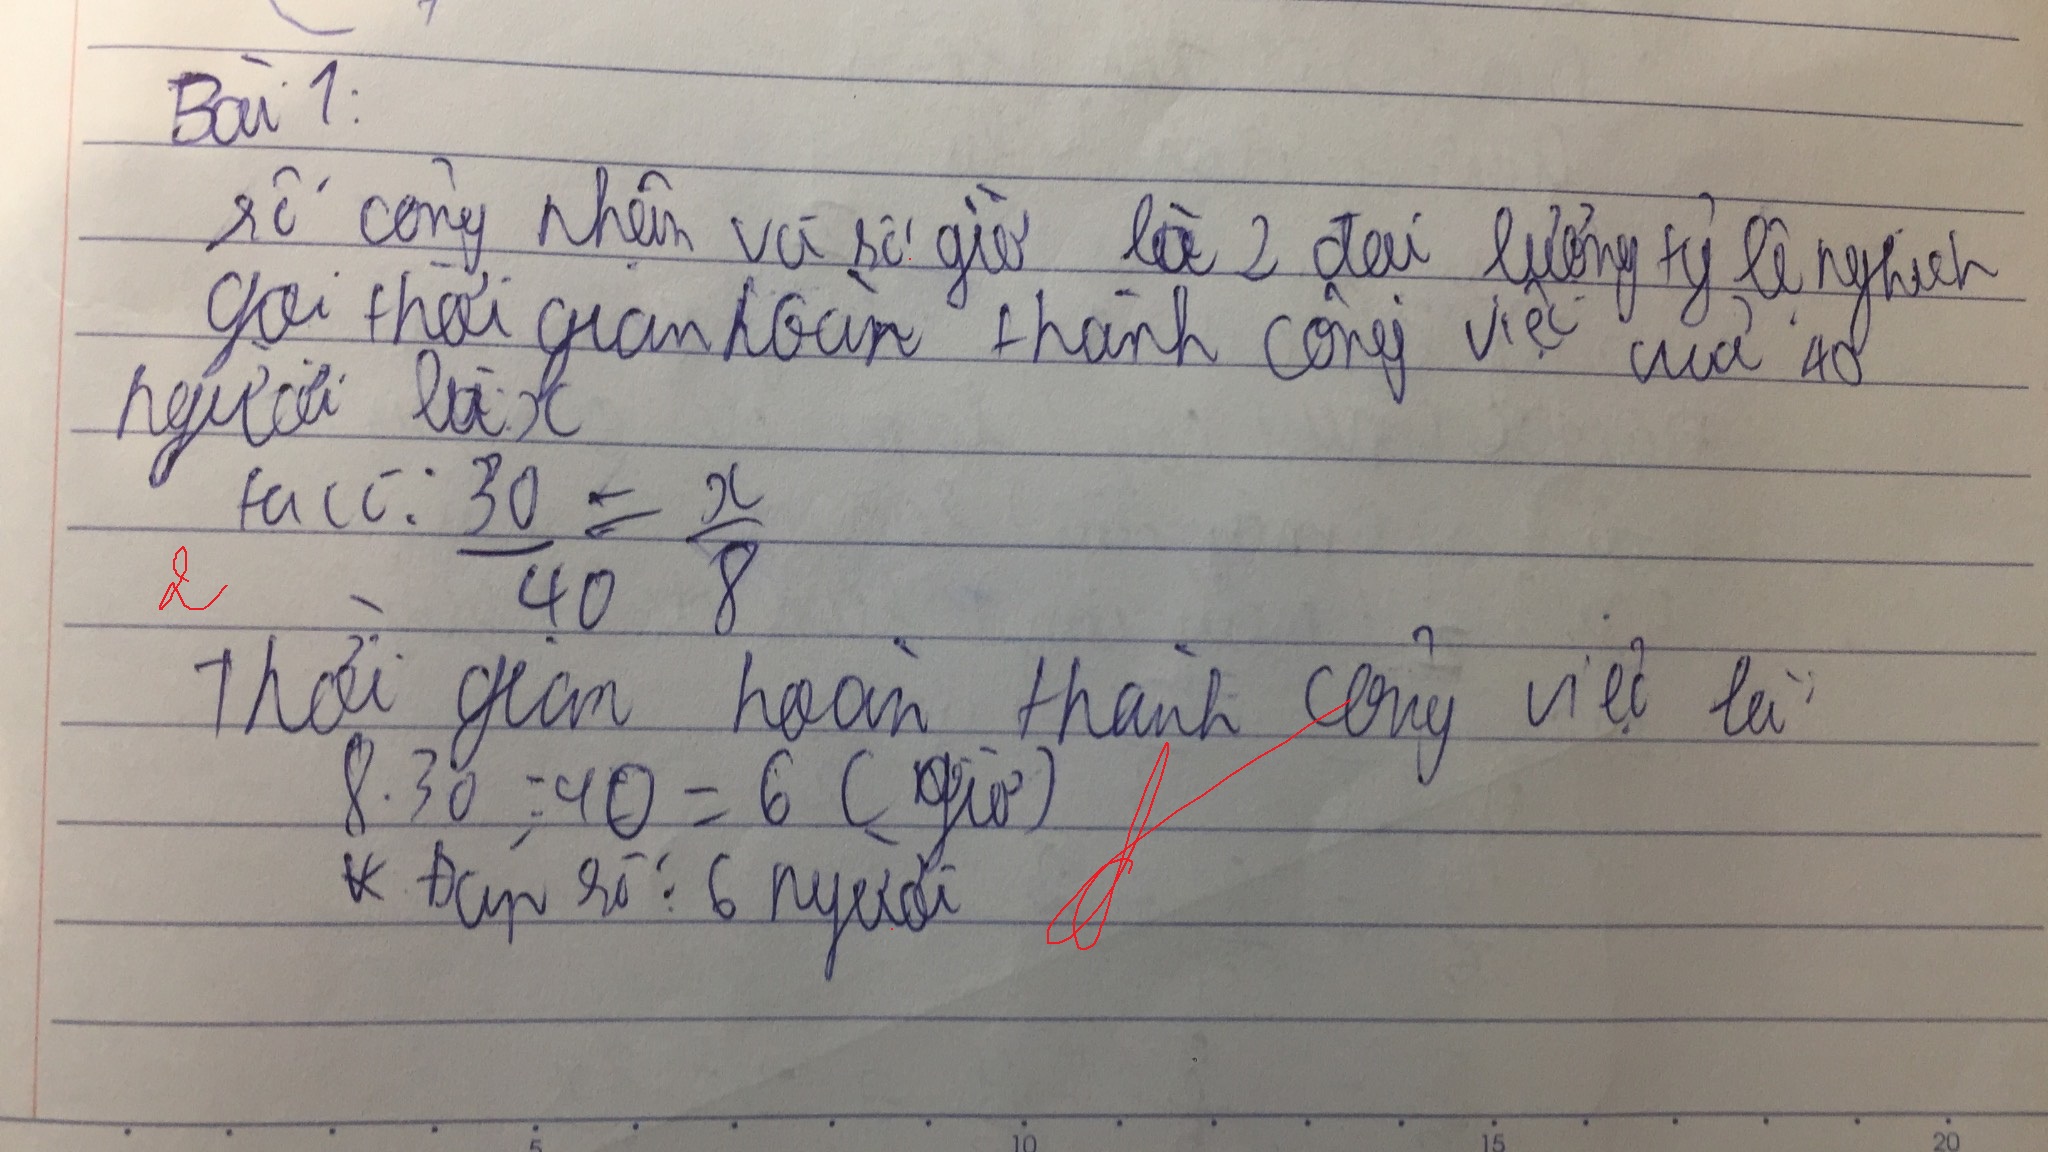 Bài 1:
số công nhân và số giờ là 2 đại lượng tỷ lệ nghịch
gọi thời gian hoàn thành công việc của 40
người là x
ta có: 30/40 = x/8
2
Thời gian hoàn thành công việc là
8.30 : 40 = 6 (giờ)
* Đáp số: 6 người
5 10 15 20